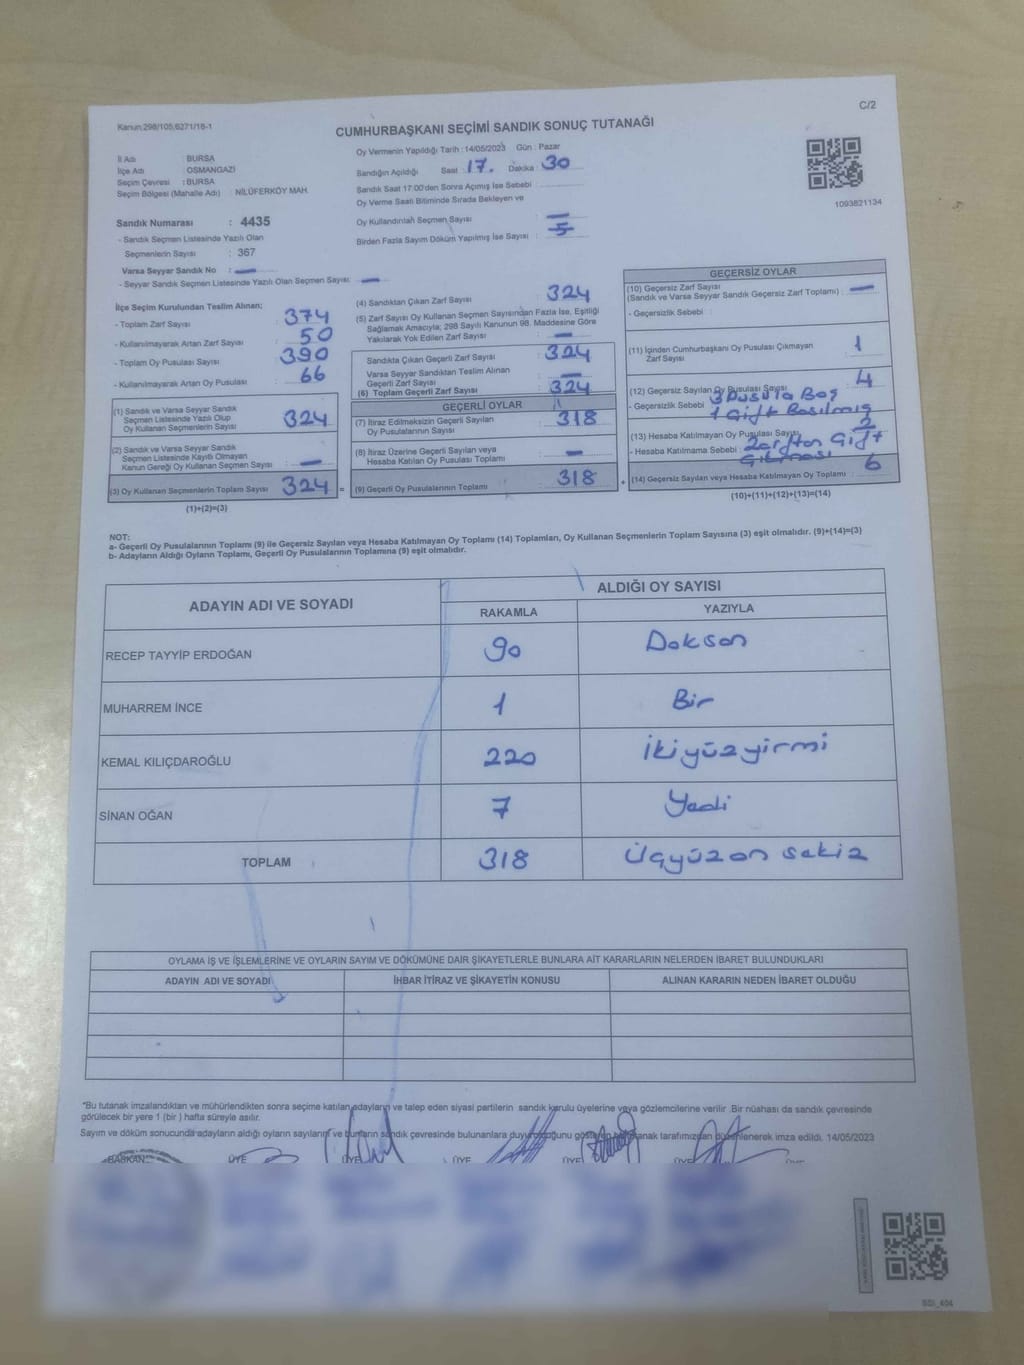 C/2
Kanun:298/105,6271/16-1
CUMHURBAŞKANI SEÇİMİ SANDIK SONUÇ TUTANAĞI
İl Adı : BURSA
İlçe Adı : OSMANGAZİ
Seçim Çevresi : BURSA
Seçim Bölgesi (Mahalle Adı) : NİLÜFERKÖY MAH.
Oy Vermenin Yapıldığı Tarih : 14/05/2023 Gün : Pazar
Sandığın Açıldığı Saat : 17. Dakika : 30
Sandık Saat 17:00'den Sonra Açımış İse Sebebi :
Oy Verme Saati Bitiminde Sırada Bekleyen ve
Oy Kullandırılan Seçmen Sayısı : —
Birden Fazla Sayım Döküm Yapılmış İse Sayısı :
1093821134
Sandık Numarası : 4435
- Sandık Seçmen Listesinde Yazılı Olan
Seçmenlerin Sayısı : 367
Varsa Seyyar Sandık No : —
- Seyyar Sandık Seçmen Listesinde Yazılı Olan Seçmen Sayısı : —
İlçe Seçim Kurulundan Teslim Alınan;
- Toplam Zarf Sayısı : 374
- Kullanılmayarak Artan Zarf Sayısı : 50
- Toplam Oy Pusulası Sayısı : 390
- Kullanılmayarak Artan Oy Pusulası : 66
(1) Sandık ve Varsa Seyyar Sandık
Seçmen Listesinde Yazılı Olup
Oy Kullanan Seçmenlerin Sayısı : 324
(2) Sandık ve Varsa Seyyar Sandık
Seçmen Listesinde Kayıtlı Olmayan
Kanun Gereği Oy Kullanan Seçmen Sayısı : —
(3) Oy Kullanan Seçmenlerin Toplam Sayısı : 324 =
(1)+(2)=(3)
(4) Sandıktan Çıkan Zarf Sayısı : 324
(5) Zarf Sayısı Oy Kullanan Seçmen Sayısından Fazla İse, Eşitliği
Sağlamak Amacıyla; 298 Sayılı Kanunun 98. Maddesine Göre
Yakılarak Yok Edilen Zarf Sayısı : —
Sandıkta Çıkan Geçerli Zarf Sayısı : 324
Varsa Seyyar Sandıktan Teslim Alınan
Geçerli Zarf Sayısı : —
(6) Toplam Geçerli Zarf Sayısı : 324
GEÇERLİ OYLAR
(7) İtiraz Edilmeksizin Geçerli Sayılan
Oy Pusulasının Sayısı : 318
(8) İtiraz Üzerine Geçerli Sayılan veya
Hesaba Katılan Oy Pusulası Toplamı : —
(9) Geçerli Oy Pusulalarının Toplamı : 318 +
GEÇERSİZ OYLAR
(10) Geçersiz Zarf Sayısı
(Sandık ve Varsa Seyyar Sandık Geçersiz Zarf Toplamı) : —
- Geçersizlik Sebebi :
(11) İçinden Cumhurbaşkanı Oy Pusulası Çıkmayan
Zarf Sayısı : 1
(12) Geçersiz Sayılan Oy Pusulası Sayısı : 4
- Geçersizlik Sebebi : 3 Pusula Boş
1 Çift Basılmış
(13) Hesaba Katılmayan Oy Pusulası Sayısı : 2
- Hesaba Katılmama Sebebi : Zarftan Çift
Çıkması
(14) Geçersiz Sayılan veya Hesaba Katılmayan Oy Toplamı : 6
(10)+(11)+(12)+(13)=(14)
NOT:
a- Geçerli Oy Pusulalarının Toplamı (9) ile Geçersiz Sayılan veya Hesaba Katılmayan Oy Toplamı (14) Toplamları, Oy Kullanan Seçmenlerin Toplam Sayısına (3) eşit olmalıdır. (9)+(14)=(3)
b- Adayların Aldığı Oyların Toplamı, Geçerli Oy Pusulalarının Toplamına (9) eşit olmalıdır.
ADAYIN ADI VE SOYADI
ALDIĞI OY SAYISI
RAKAMLA YAZIYLA
RECEP TAYYİP ERDOĞAN 90 Doksan
MUHARREM İNCE 1 Bir
KEMAL KILIÇDAROĞLU 220 İkiyüzyirmi
SİNAN OĞAN 7 Yedi
TOPLAM 318 Üçyüzon sekiz
OYLAMA İŞ VE İŞLEMLERİNE VE OYLARIN SAYIM VE DÖKÜMÜNE DAİR ŞİKAYETLERLE BUNLARA AİT KARARLARIN NELERDEN İBARET BULUNDUKLARI
ADAYIN ADI VE SOYADI İHBAR İTİRAZ VE ŞİKAYETİN KONUSU ALINAN KARARIN NEDEN İBARET OLDUĞU
*Bu tutanak imzalandıktan ve mühürlendikten sonra seçime katılan adayların ve talep eden siyasi partilerin sandık kurulu üyelerine veya gözlemcilerine verilir .Bir nüshası da sandık çevresinde
görülecek bir yere 1 (bir ) hafta süreyle asılır.
Sayım ve döküm sonucunda adayların aldığı oyların sayılarını ve bunların sandık çevresinde bulunanlara duyurulduğunu gösteren tutanak tarafımızdan düzenlenerek imza edildi. 14/05/2023
BAŞKAN ÜYE ÜYE ÜYE ÜYE ÜYE ÜYE